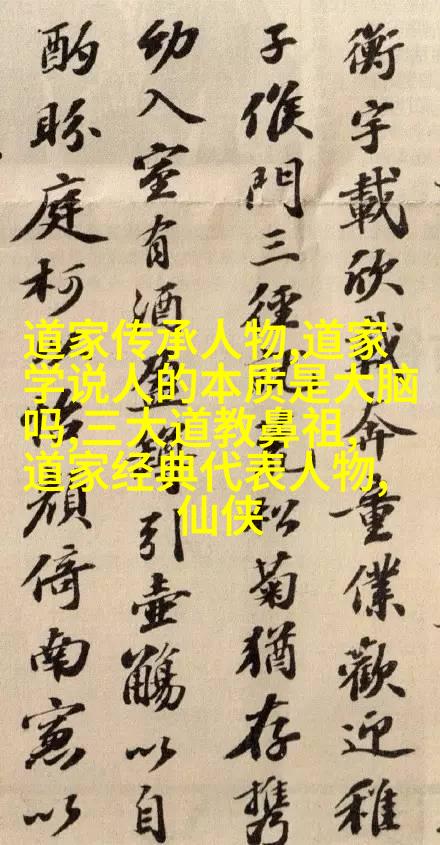 衡宇載欣載奔童僕歡迎稚
子候門三徑松菊猶存携
幼入室有酒盈樽引壺觴以自
酌眄庭柯怡顏倚南窻以
道家传承人物,道家
学说人的本质是大脑
吗,三大道教鼻祖,
道家经典代表人物,
仙侠